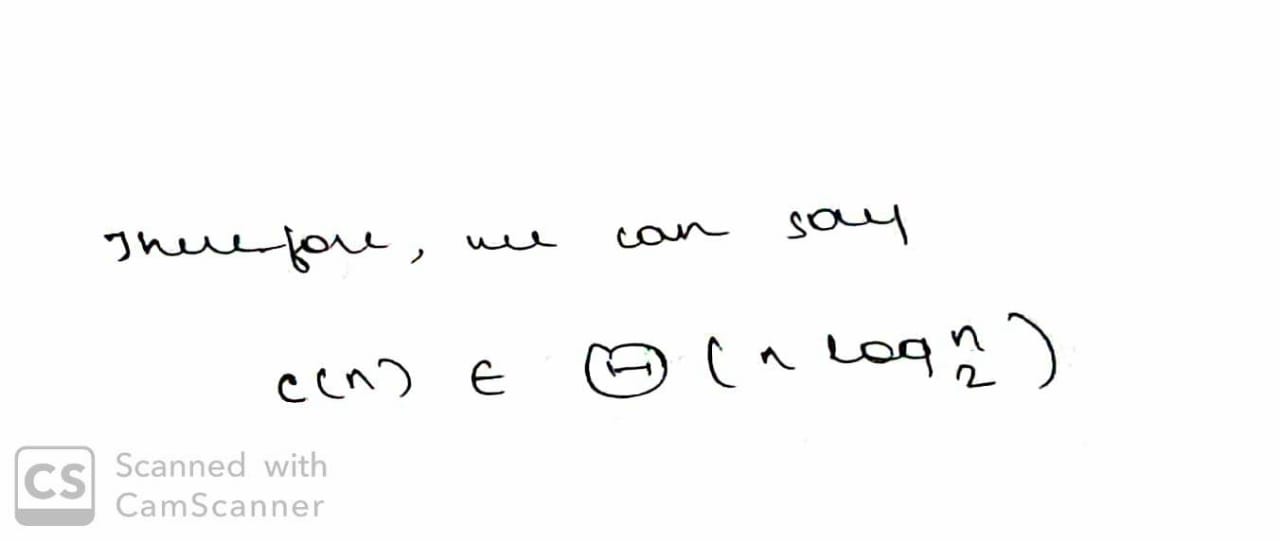 Therefore, we can say
c(n) ∈ Θ (n log₂ⁿ)
CS Scanned with
CamScanner